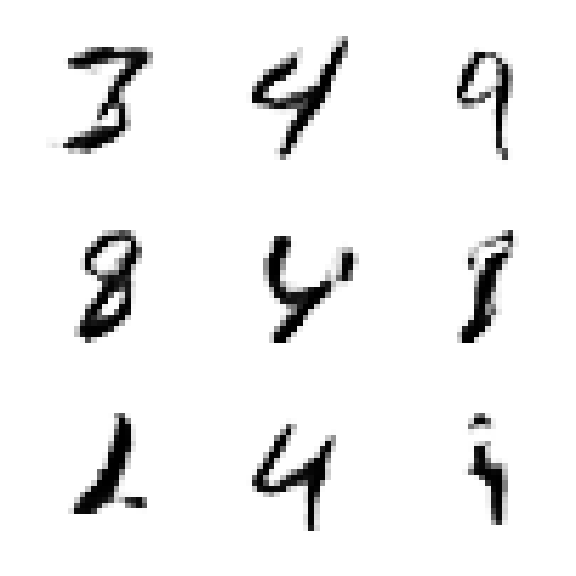 3 4 9
8 4 8
2 4 9